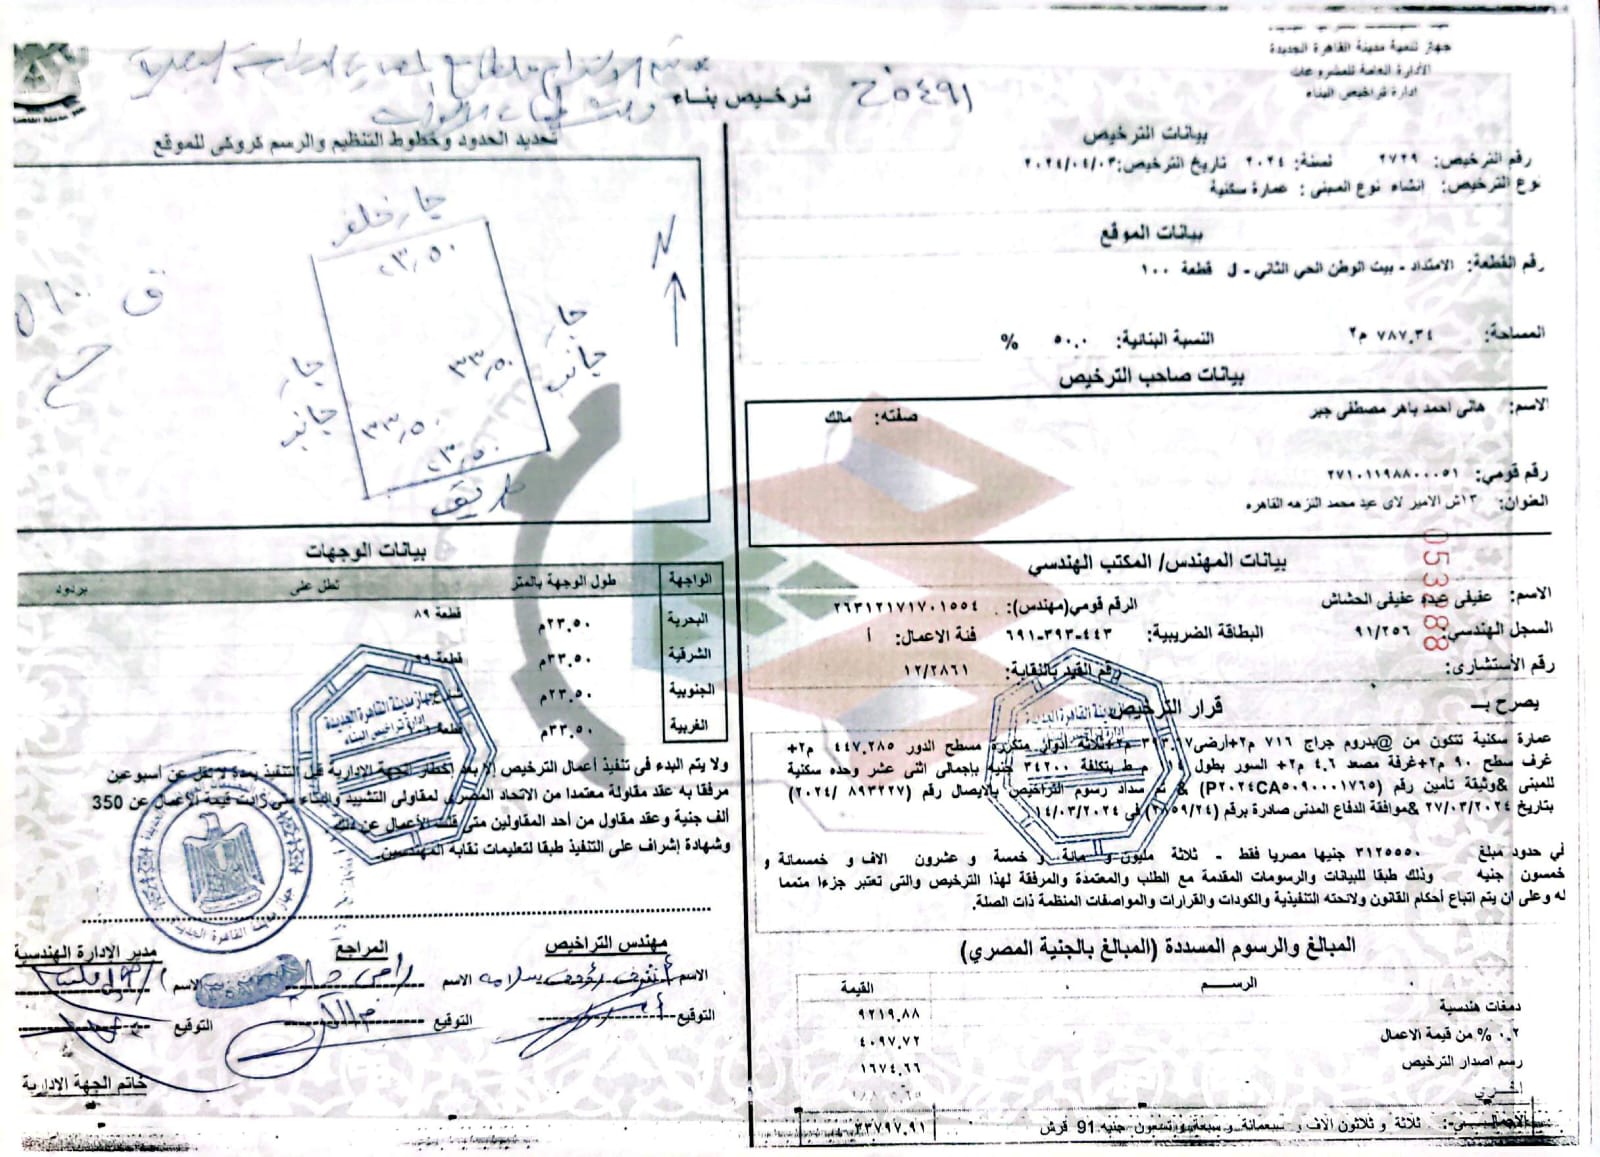 جهاز تنمية مدينة القاهرة الجديدة
الادارة العامة للمشروعات
ادارة تراخيص البناء
ترخيص بناء
٢٥٤٩١
بيانات الترخيص
رقم الترخيص: ٢٧٢٩ لسنة: ٢٠٢٤ تاريخ الترخيص: ٢٠٢٤/٠٤/٠٣
نوع الترخيص: إنشاء نوع المبنى: عمارة سكنية
بيانات الموقع
رقم القطعة: الامتداد - بيت الوطن الحي الثاني - ل قطعة ١٠٠
المساحة: ٧٨٧.٣٤ م٢ النسبة البنائية: ٥٠.٠ %
بيانات صاحب الترخيص
الاسم: هانى احمد باهر مصطفى جبر صفته: مالك
رقم قومي: ٢٧١٠١١٩٨٨٠٠٠٥١
العنوان: ١٣ش الامير لاى عبد محمد النزهه القاهره
0532888
بيانات المهندس/ المكتب الهندسي
الاسم: عفيفى عبده عفيفى الحشاش الرقم قومي(مهندس): ٢٦٣١٢١٧١٧٠١٥٥٤
السجل الهندسي: ٩١/٢٥٦ البطاقة الضريبية: ٤٤٣-٣٩٣-٦٩١ فئة الاعمال: أ
رقم الأستشارى: رقم القيد بالنقابة: ١٢/٢٨٦١
قرار الترخيص
يصرح بـ
عمارة سكنية تتكون من @بدروم جراج ٧١٦ م٢+أرضى م٢+ثلاثة أدوار متكررة مسطح الدور ٤٤٧.٢٨٥ م٢+
غرف سطح ٩٠ م٢+غرفة مصعد ٤.٦ م٢+ السور بطول م.ط بتكلفة ٣٤٢٠٠ جنيه بإجمالى اثنى عشر وحده سكنية
للمبنى &وثيقة تأمين رقم (P٢٠٢٤CA٥٠٩٠٠٠١٧٦٥) & تم سداد رسوم التراخيص بالايصال رقم (٨٩٣٢٢٧ /٢٠٢٤)
بتاريخ ٢٧/٠٣/٢٠٢٤ &موافقة الدفاع المدنى صادرة برقم فى ١٤/٠٣/٢٠٢٤
في حدود مبلغ ٣١٢٥٥٥٠ جنيها مصريا فقط - ثلاثة مليون و مائة و خمسة و عشرون الاف و خمسمائة و
خمسون جنيه وذلك طبقا للبيانات والرسومات المقدمة مع الطلب والمعتمدة والمرفقة لهذا الترخيص والتى تعتبر جزءا متمما
له وعلى ان يتم اتباع أحكام القانون ولائحته التنفيذية والكودات والقرارات والمواصفات المنظمة ذات الصلة.
المبالغ والرسوم المسددة (المبالغ بالجنية المصري)
الرسم القيمة
دمغات هندسية ٩٢١٩.٨٨
٠.٢ % من قيمة الاعمال ٤٠٩٧.٧٢
رسم اصدار الترخيص ١٦٧٤.٦٦
أخرى
الاجمالي: ثلاثة و ثلاثون الاف و سبعمائة و سبعة و تسعون جنيه 91 قرش ٣٣٧٩٧.٩١
تحديد الحدود وخطوط التنظيم والرسم كروكى للموقع
جار خلفى
٢٣٫٥٠
جار
جانبى
٣٣٫٥٠
جار
جانبى
٣٣٫٥٠
٢٣٫٥٠
طريق
N
ق ١٠٠ ل
بيانات الوجهات
الواجهة طول الوجهة بالمتر تطل على بردود
البحرية ٢٣.٥٠م قطعة ٨٩
الشرقية ٣٣.٥٠م قطعة
الجنوبية ٢٣.٥٠م شارع
الغربية ٣٣.٥٠م قطعة
جهاز مدينة القاهرة الجديدة
إدارة تراخيص البناء
ولا يتم البدء فى تنفيذ أعمال الترخيص إلا بعد إخطار الجهة الادارية قبل التنفيذ بمدة لا تقل عن أسبوعين
مرفقا به عقد مقاولة معتمدا من الاتحاد المصرى لمقاولى التشييد والبناء متى زادت قيمة الأعمال عن 350
ألف جنية وعقد مقاول من أحد المقاولين متى قلت الأعمال عن ذلك
وشهادة إشراف على التنفيذ طبقا لتعليمات نقابه المهندسين.
مهندس التراخيص المراجع مدير الادارة الهندسية
الاسم الاسم الاسم
التوقيع التوقيع التوقيع
خاتم الجهة الادارية